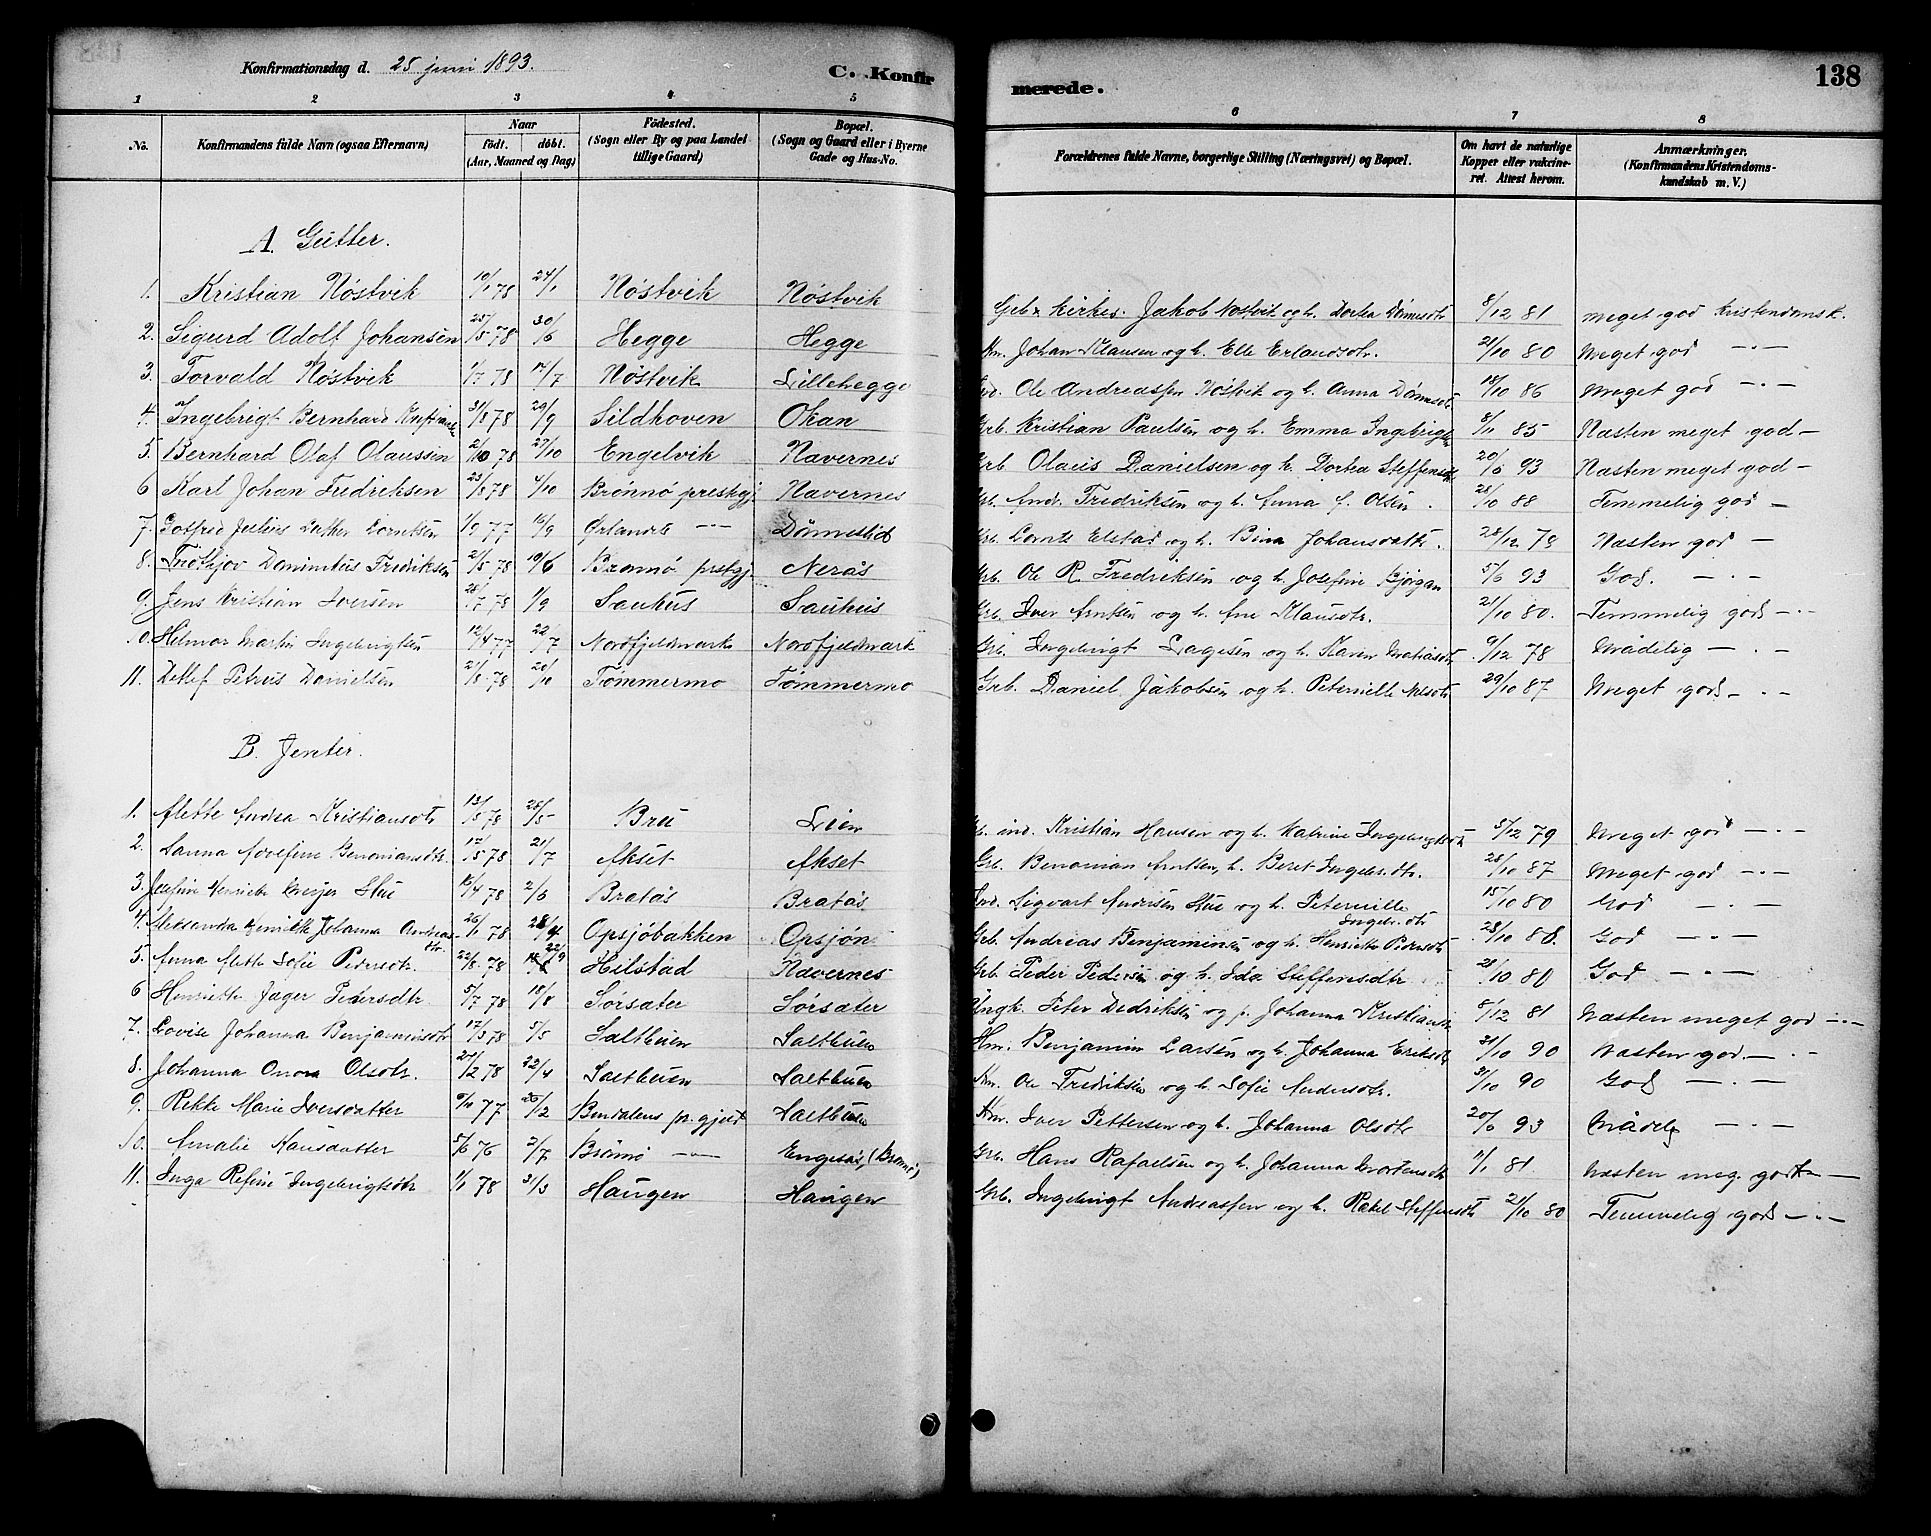 Konfirmationsdag d. 25 juni 1893.
C. Konfirmerede.
138
1 2 3 4 5 6 7 8
No.
Konfirmandens fulde Navn (ogsaa Efternavn)
Naar
födt. döbt.
(Aar, Maaned og Dag)
Födested.
(Sogn eller By og paa Landet
tillige Gaard)
Bopæl.
(Sogn og Gaard eller i Byerne
Gade og Hus-No.
Forældrenes fulde Navne, borgerlige Stilling (Næringsvei) og Bopæl.
Om havt de naturlige
Kopper eller vakcine-
ret. Attest herom.
Anmærkninger.
(Konfirmandens Kristendoms-
kundskab m. V.)
A. Gutter.
1. Kristian Nöstvik 10/1 78 24/1 Nöstvik Nöstvik Grb. & Kirkes. Jakob Nöstvik og h. Dortea Dönnesdtr 8/12 81 meget god Kristendomsk.
2. Sigurd Adolf Johansen 25/5 78 30/6 Hegge Hegge Hm. Johan Klausen og h. Elle Erlandsdtr. 21/10 80 Meget god — · —
3. Torvald Nöstvik 1/7 78 14/7 Nöstvik Lillehegge Ind. Ole Andreassen Nöstvik og h. Anna Dönnesdtr 18/10 86 Meget god — · —
4. Ingebrigt Bernhard Kristiansen 31/8 78 29/9 Sildhoven Okan Grb. Kristian Paulsen og h. Emma Ingebrigtsdtr 8/11 85 Næsten meget god —
5. Bernhard Olaf Olaussen 2/10 78 27/10 Engelvik Navernes Grb Olaus Danielsen og h. Dortea Steffensdtr 20/6 93 Næsten meget god —
6 Karl Johan Fredriksen 23/8 78 4/10 Brönnö prestgj. Navernes Grb. And. Fredriksen og h. Anna f. Olsen. 28/10 88 Temmelig god —
7. Gotfred Julius Lorntsen 1/9 77 16/9 Örlandets — " — Dönneslid Grb. Lornts Elstad og h. Bina Johansdatter. 28/12 78 Næsten god —
8. Fridtjov Fredriksen 2/5 78 10/6 Brönnö prstgj. Nerås Grb. Ole R. Fredriksen og h. Josefine Bjögan 5/6 93 God. — · —
9. Jens Kristian Iversen 28/7 78 1/9 Sauhus Sauhus Grb. Iver Arntsen og h. Ane Klausdtr. 21/10 80. Temmelig god — · —
10. Hilmar Martin Ingebrigtsen 12/4 77 22/7 Nordfjeldmark Nordfjeldmark Grb. Ingebrigt Lagesen og h. Karen Matiasdtr 9/12 78 Mådelig — · —
11. Detlef Petrus Danielsen 21/8 78 20/10 Tömmermo Tömmermo Grb. Daniel Jakobsen og h. Peternille Nilsdtr 29/10 87 Meget god — · —
B. Jenter.
1. Alette Andrea Kristiansdtr 13/5 78 26/5 Bru Lien Grb. ind. Kristian Hansen og h. Katrine Ingebrigtsdtr 5/12 79 Meget god — · —
2. Lanna Benoniansdtr. 12/5 78 21/7 Akset Akset Grb. Benonian Arntsen, h. Beret Ingebr.dtr. 28/10 87 Meget god — · —
3. Josefine Henriette Meyer Stue 16/4 78 2/6 Bratås Bratås Ind. Sigvart Andersen Stue og h. Peternille Ingebr.dtr 15/10 80 God — · —
4. Aleksanda Henrikke Johanna Andreasdtr. 26/1 78 28/4 Opsjöbakken Opsjön Grb. Andreas Benjaminsen og h. Henriette Pedersdtr 28/10 88. God — · —
5. Anna Alette Sofie Pedersdtr. 22/8 78 22/9 Hilstad Navernes Grb. Peder Pedersen og h. Ida Steffensdtr 28/10 80 God — · —
6 Henriette Jæger Pedersdtr. 5/7 78 18/8 Sörsæter Sörsæter Ungk. Peter Dedriksen og p. Johanna Kristiansdtr 5/12 81 Næsten meget god — · —
7. Lovise Johanna Benjaminsdtr 17/3 78 5/5 Saltbuen Saltbuen Hm. Benjamin Larsen og h. Johanna Eriksdtr 31/10 90 Næsten god. — · —
8. Johanna Olsdtr. 24/2 78 22/4 Saltbuen Saltbuen Hm. Ole Fredriksen og h. Sofie Andersdtr. 31/10 90 God — · —
9. Rikke Marie Iversdatter 9/11 77 26/12 Bindalens pr.gjeld Saltbuen Hm. Iver Pettersen og h. Johanna Olsdtr 20/6 93 Mådelig — · —
10. Amalie Hansdatter 5/6 76 2/7 Brönnö — " — Engesås, (Brönnö) Grb. Hans Rafaelsen og h. Johanna Mortensdtr 11/1 81. Næsten meg. godt —
11. Inga Refine Ingebrigtsdtr 1/1 78 31/3 Haugen Haugen Grb. Ingebrigt Andreassen og h. Rakel Steffensdtr 21/10 80 Temmelig god — · —